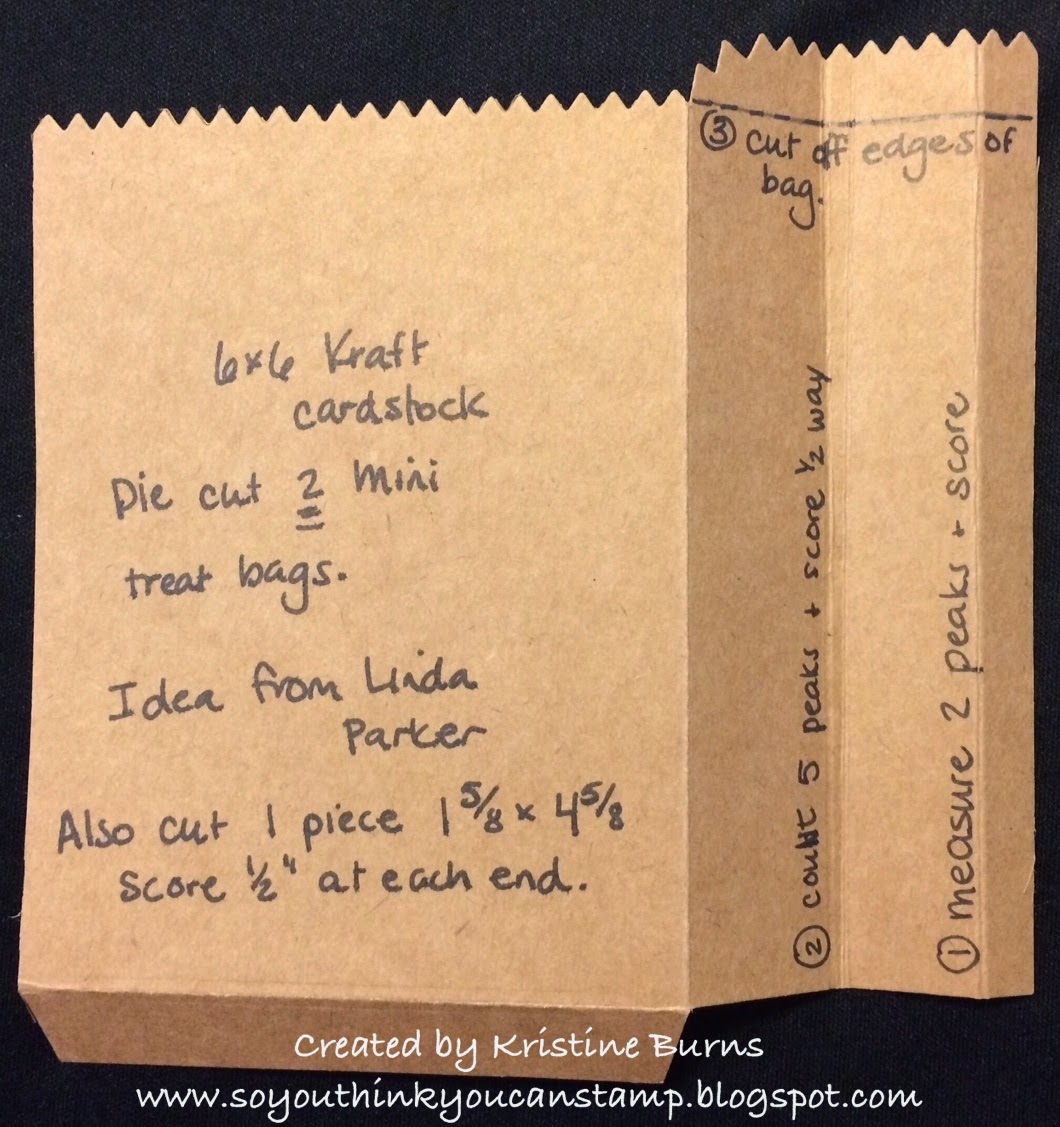 6x6 Kraft
cardstock
Die cut 2 mini
treat bags.
Idea from Linda
Parker
Also cut 1 piece 1 5/8 x 4 5/8
Score 1/2" at each end.
③ cut off edges of
bag.
② count 5 peaks + score 1/2 way
① measure 2 peaks + score
Created by Kristine Burns
www.soyouthinkyoucanstamp.blogspot.com